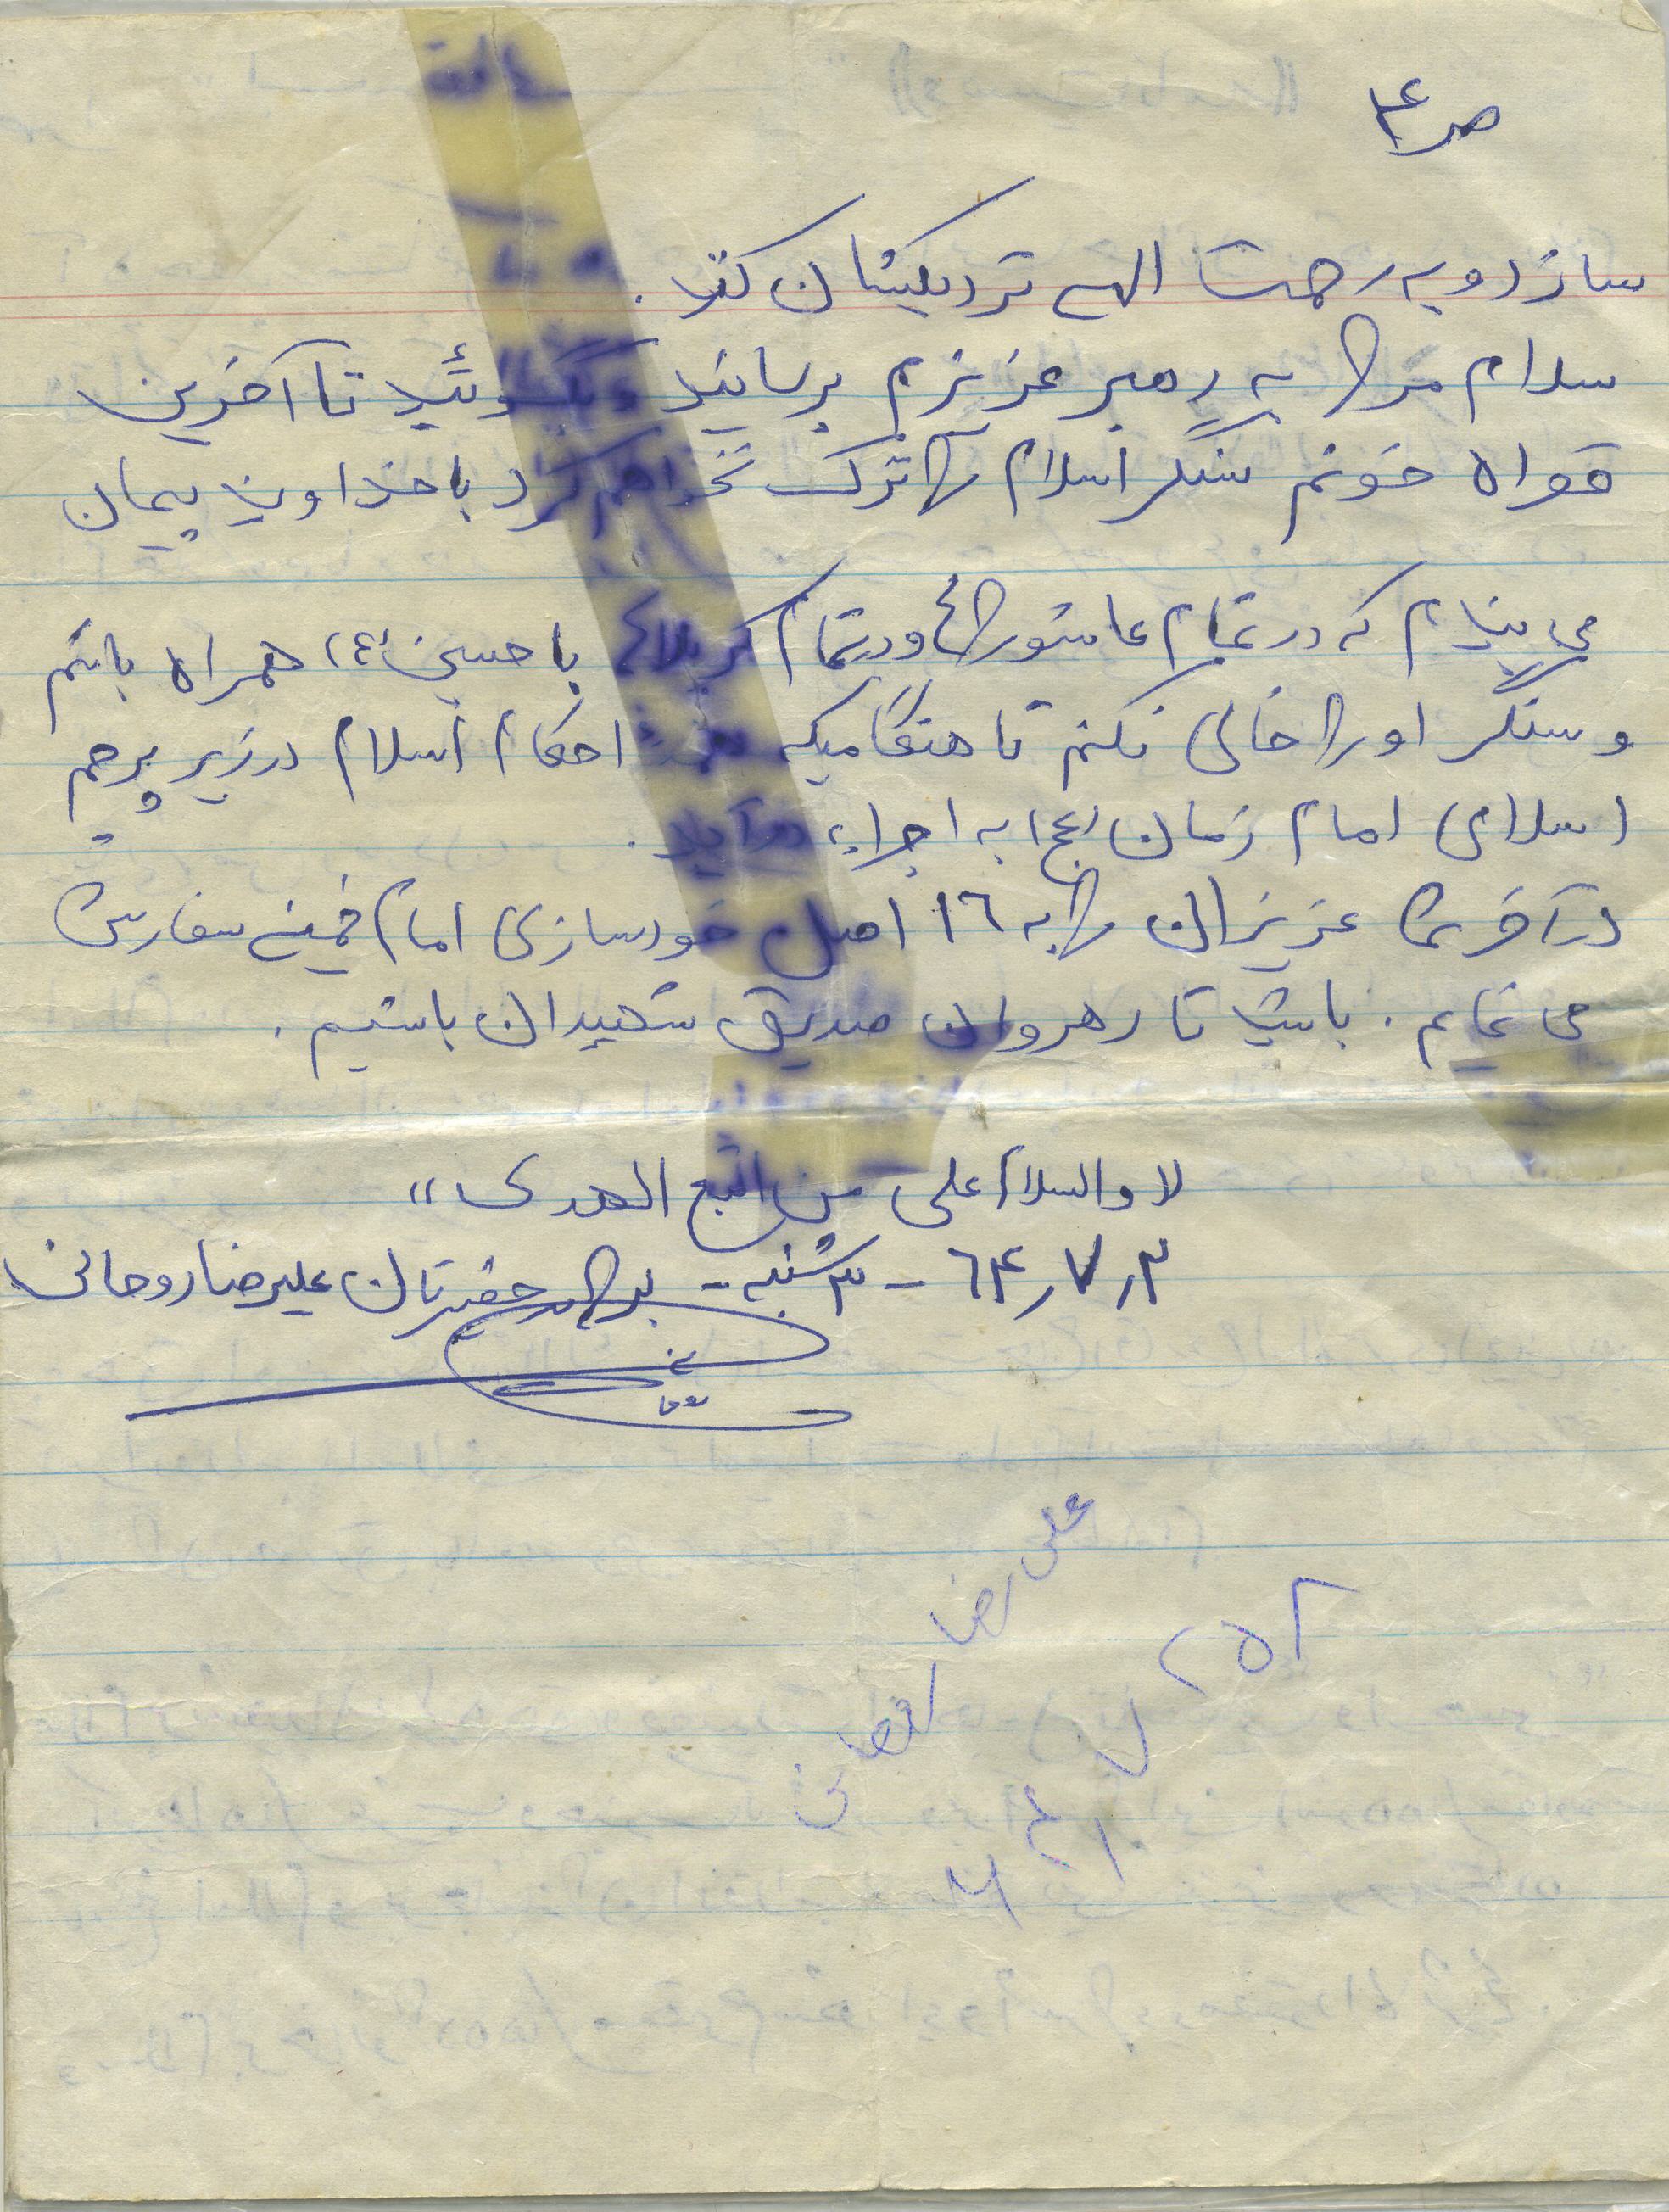 ص ۴
سازد و به رحمت الهی نزدیکیتان کند.
سلام مرا به رهبر عزیزم برسانید و بگوئید تا آخرین
قطره خونم سنگر اسلام را ترک نخواهم کرد با خداوند پیمان
می بندم که در تمام عاشوراها و در تمام کربلاها با حسین (ع) همراه باشم
و سنگر او را خالی نکنم تا هنگامیکه همه احکام اسلام در زیر پرچم
اسلامی امام زمان (عج) به اجراء درآید.
در آخر شما عزیزان را به ١٦ اصل خودسازی امام خمینی سفارش
می نمایم. باشد تا رهروان صدیق شهیدان باشیم.
«والسلام علی من اتبع الهدی»
۶۴/۷/۳ - ۳شنبه - برادر حقیرتان علیرضا روحانی
علی رضا